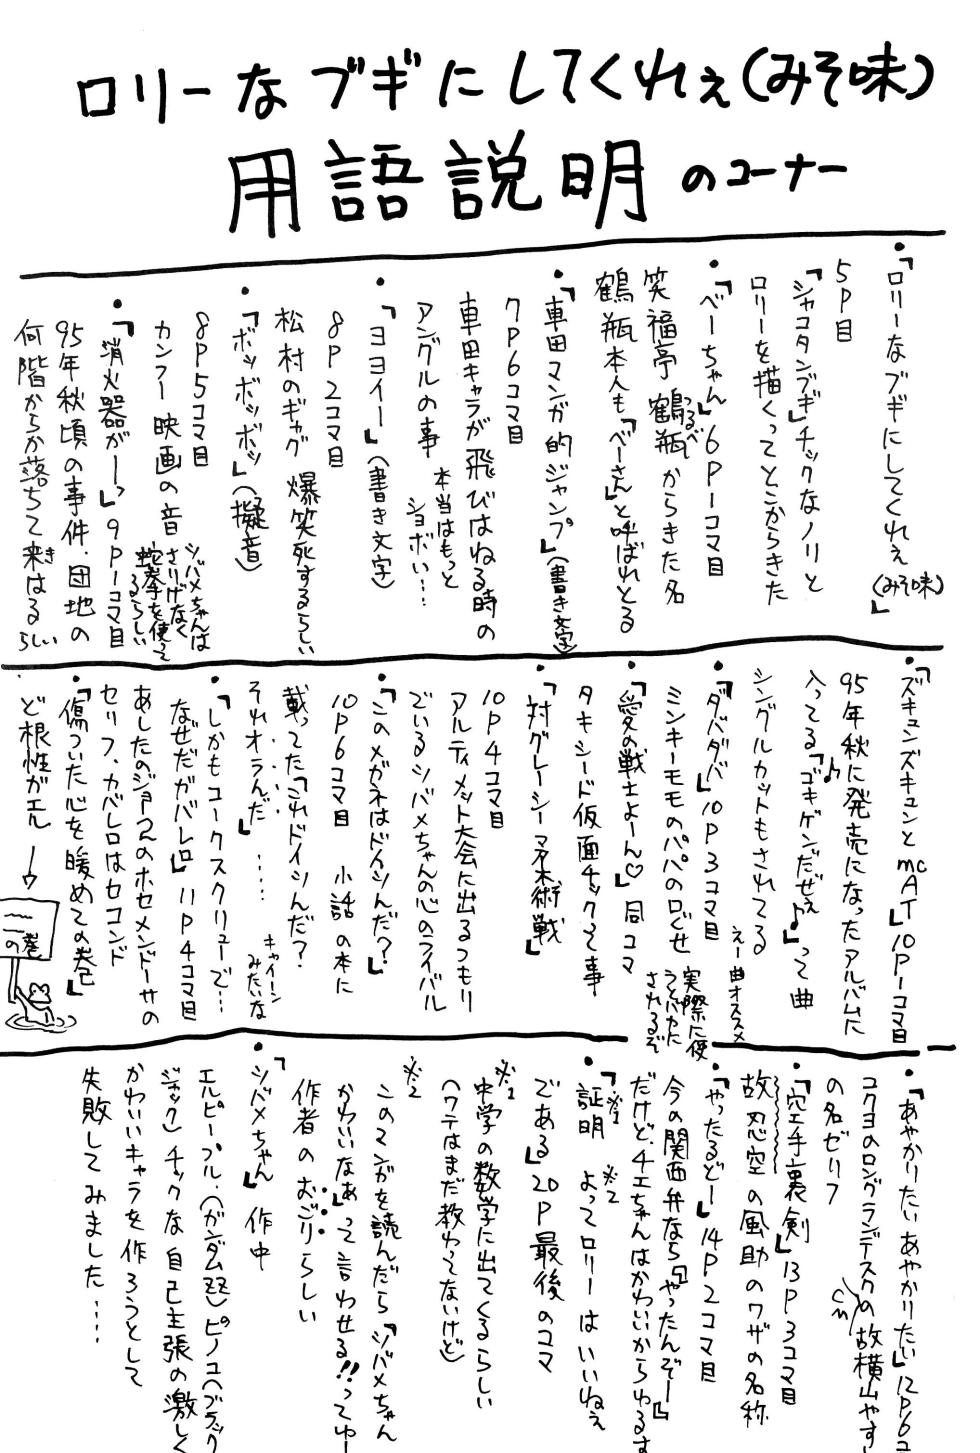 ロリーなブギにしてくれぇ(みそ味)
用語説明のコーナー
・「ロリーなブギにしてくれぇ(みそ味)」
5P目
「シャコタンブギ」チックなノリと
ロリーを描くってとこからきた
・「べーちゃん」6P1コマ目
笑福亭鶴瓶からきた名
つるべ
鶴瓶本人も「べーさん」と呼ばれとる
・「車田マンガ的ジャンプ」(書き文字)
7P6コマ目
車田キャラが飛びはねる時の
アングルの事
本当はもっと
ショボい…
・「ヨヨイー」(書き文字)
8P2コマ目
松村のギャグ 爆笑死するらしい
・「ボッボッボッ」(擬音)
8P5コマ目
カンフー映画の音
シバメちゃんは
さりげなく
蛇拳を使って
るらしい
・「消火器がーっ」9P1コマ目
95年秋頃の事件.団地の
何階からか落ちて来はるらしい
き
・「ズキュンズキュンとmcAT」10P1コマ目
95年秋に発売になったアルバムに
入ってる「♪ゴキゲンだぜぇ♪」って曲
シングルカットもされてる
えー曲オススメ
・「ダバダバ」10P3コマ目
ミンキーモモのパパの口ぐせ
実際に使
うとバカに
されるぞ
・「愛の戦士よーん♡」同コマ
タキシード仮面チックって事
・「対グレーシーマ柔術戦」
10P4コマ目
アルティメット大会に出るつもり
でいるシバメちゃんの心のライバル
・「このメガネはドイツんだ?」
10P6コマ目 小話の本に
載ってた「これドイツんだ?
それオランだ」……
キャイーン
みたいな
・「しかもコークスクリューで…
なぜだガバレロ」11P4コマ目
あしたのジョー2のホセメンドーサの
セリフ.カバレロはセコンド
・「傷ついた心を暖めての巻」
ど根性ガエル→
ニニの巻
・「あやかりたいあやかりたい」12P6コ
コクヨのロングランデスクの故横山やす
CM
の名ゼリフ
・「空手裏剣」13P3コマ目
故忍空の風助のワザの名称
・「やったるどー」14P2コマ目
今の関西弁なら「やったんぞー」
だけど.チエちゃんはかわいいからゆるす
・「※1証明 よって※2ロリーはいいねぇ
である」20P最後のコマ
※1
中学の数学に出てくるらしい
(ワテはまだ教わってないけど)
※2
このマンガを読んだら「シバメちゃん
かわいいなぁ」って言わせる!!ってゆー
作者のおごりらしい
・「シバメちゃん」作中
エルピープル.(ガンダムZZ)ピノコ(ブラック
ジャック)チックな自己主張の激しく
かわいいキャラを作ろうとして
失敗してみました…